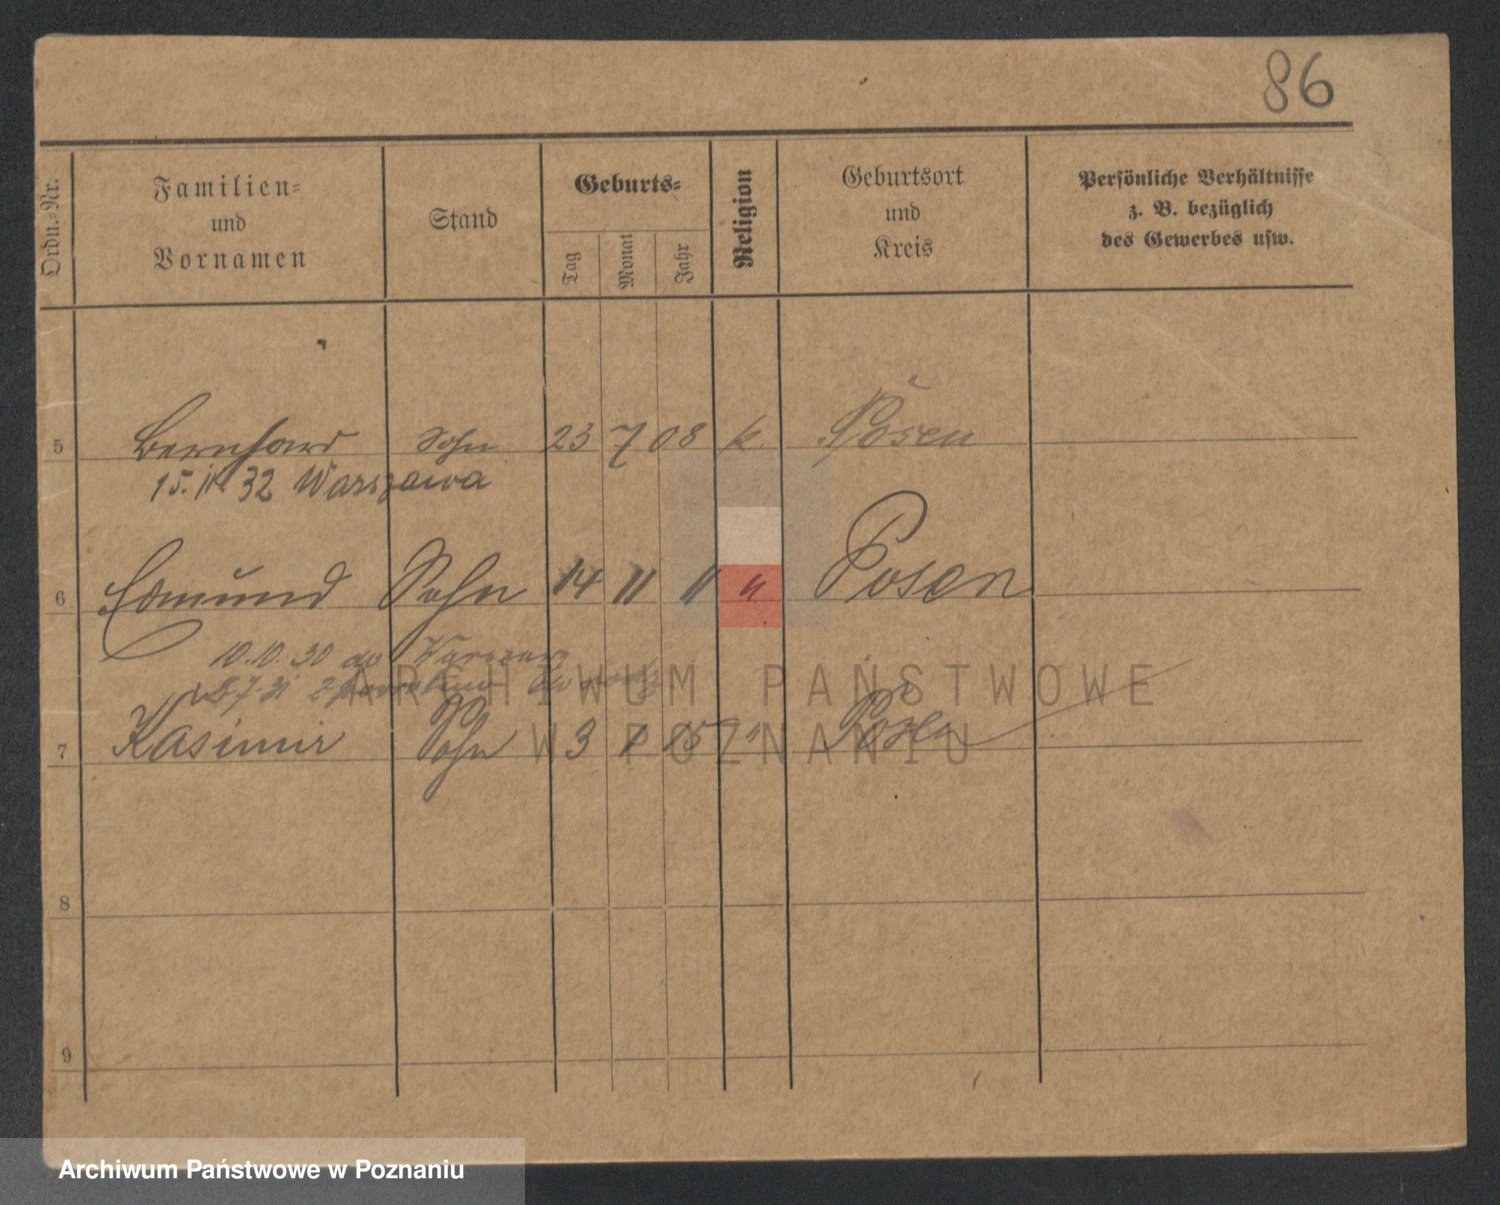 86
Ordn.-Nr.
Familien-
und
Vornamen
Stand
Geburts-
Tag
Monat
Jahr
Religion
Geburtsort
und
Kreis
Persönliche Verhältnisse
z. B. bezüglich
des Gewerbes usw.
5 Bernhard Sohn 23 7 08 k. Posen
15. 32 Warszawa
6 Edmund Sohn 14 11 11 " Posen
10.10.30 do
ARCHIWUM PAŃSTWOWE
7 Kasimir Sohn 3 15 "
W POZNANIU
8
9
Archiwum Państwowe w Poznaniu